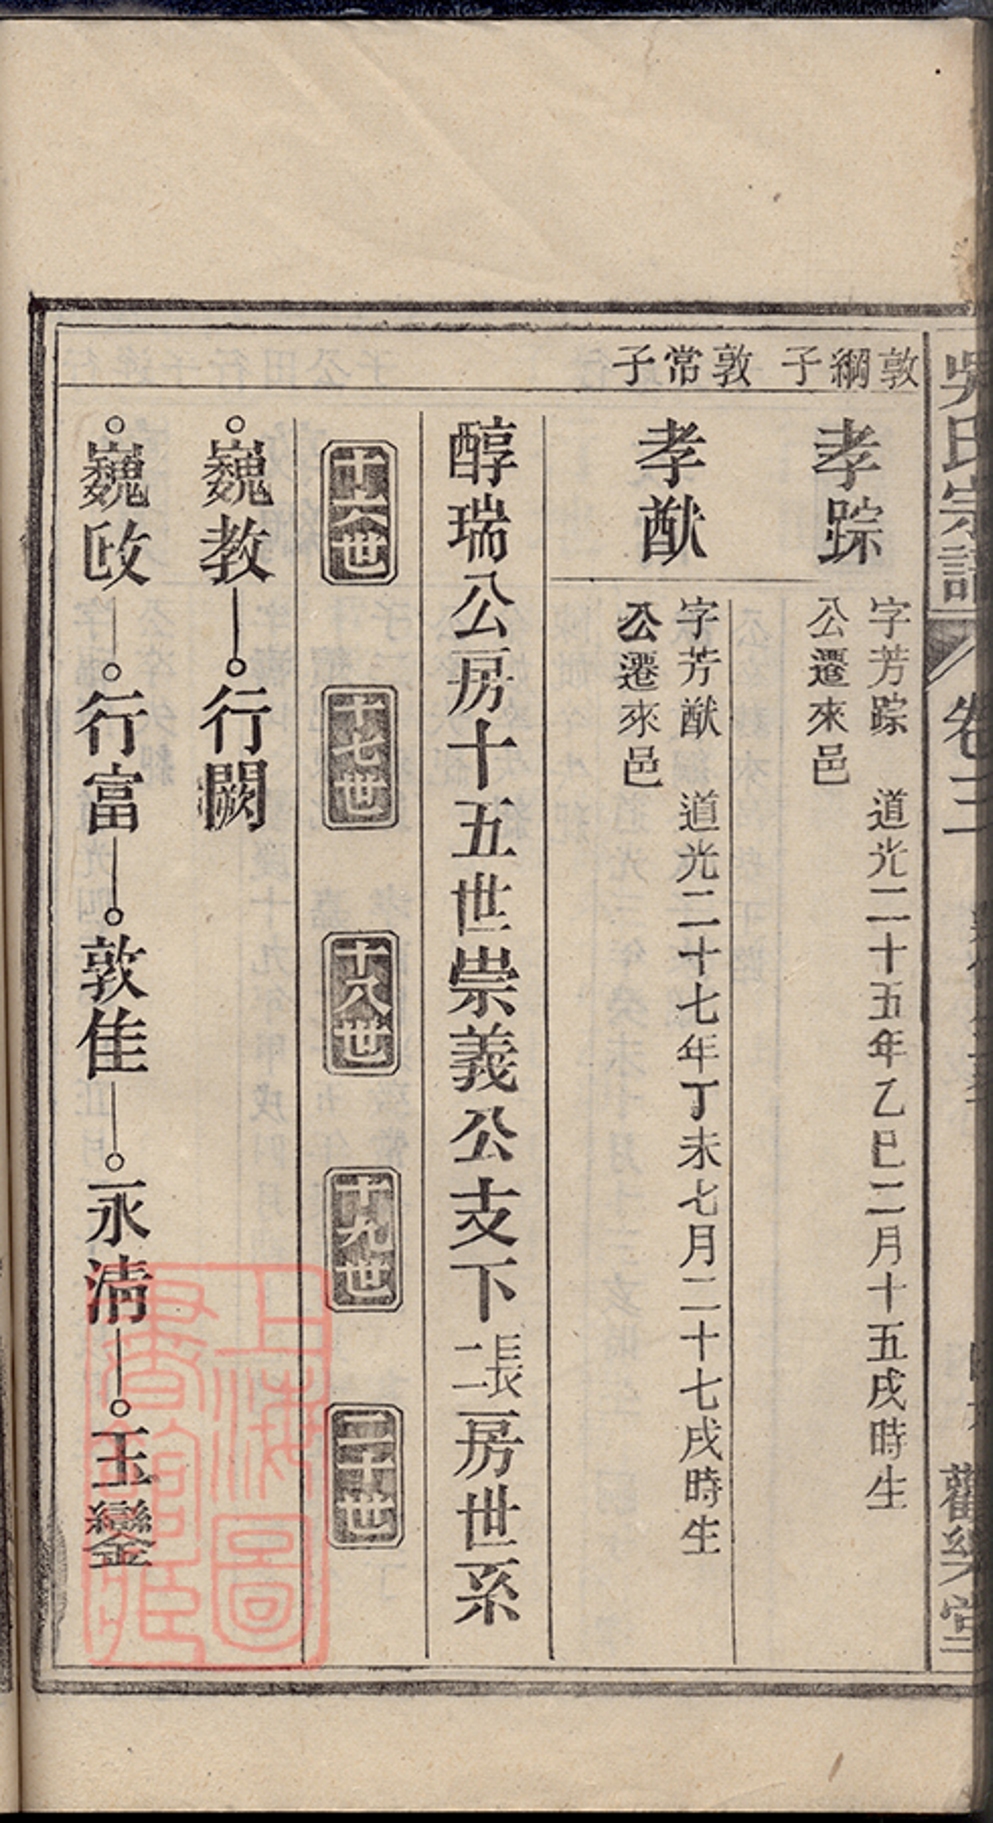 吳氏宗譜
卷三
觀樂堂
敦綱子
孝踪
字芳踪 道光二十五年乙巳二月十五戌時生
公遷來邑
敦常子
孝猷
字芳猷 道光二十七年丁未七月二十七戌時生
公遷來邑
醇瑞公房十五世崇義公支下長二房世系
十六世 十七世 十八世 十九世 二十世
巍教 行闕
巍政 行富 敦佳 永清 玉鑾
上海圖書館藏